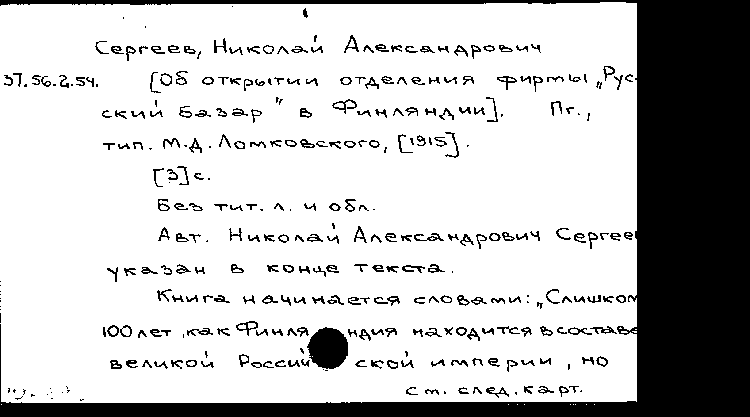 Сергеев, Николай Александрович
37.56.2.54. [Об открытии отделения фирмы „Рус-
ский базар" в Финляндии]. Пг.,
тип. М.Д. Ломковского, [1915].
[3]с.
Без тит. л. и обл.
Авт. Николай Александрович Сергеев
указан в конце текста.
Книга начинается словами: „Слишком
100 лет, как Финляндия находится в составе
великой Российской империи, но
см. след. карт.